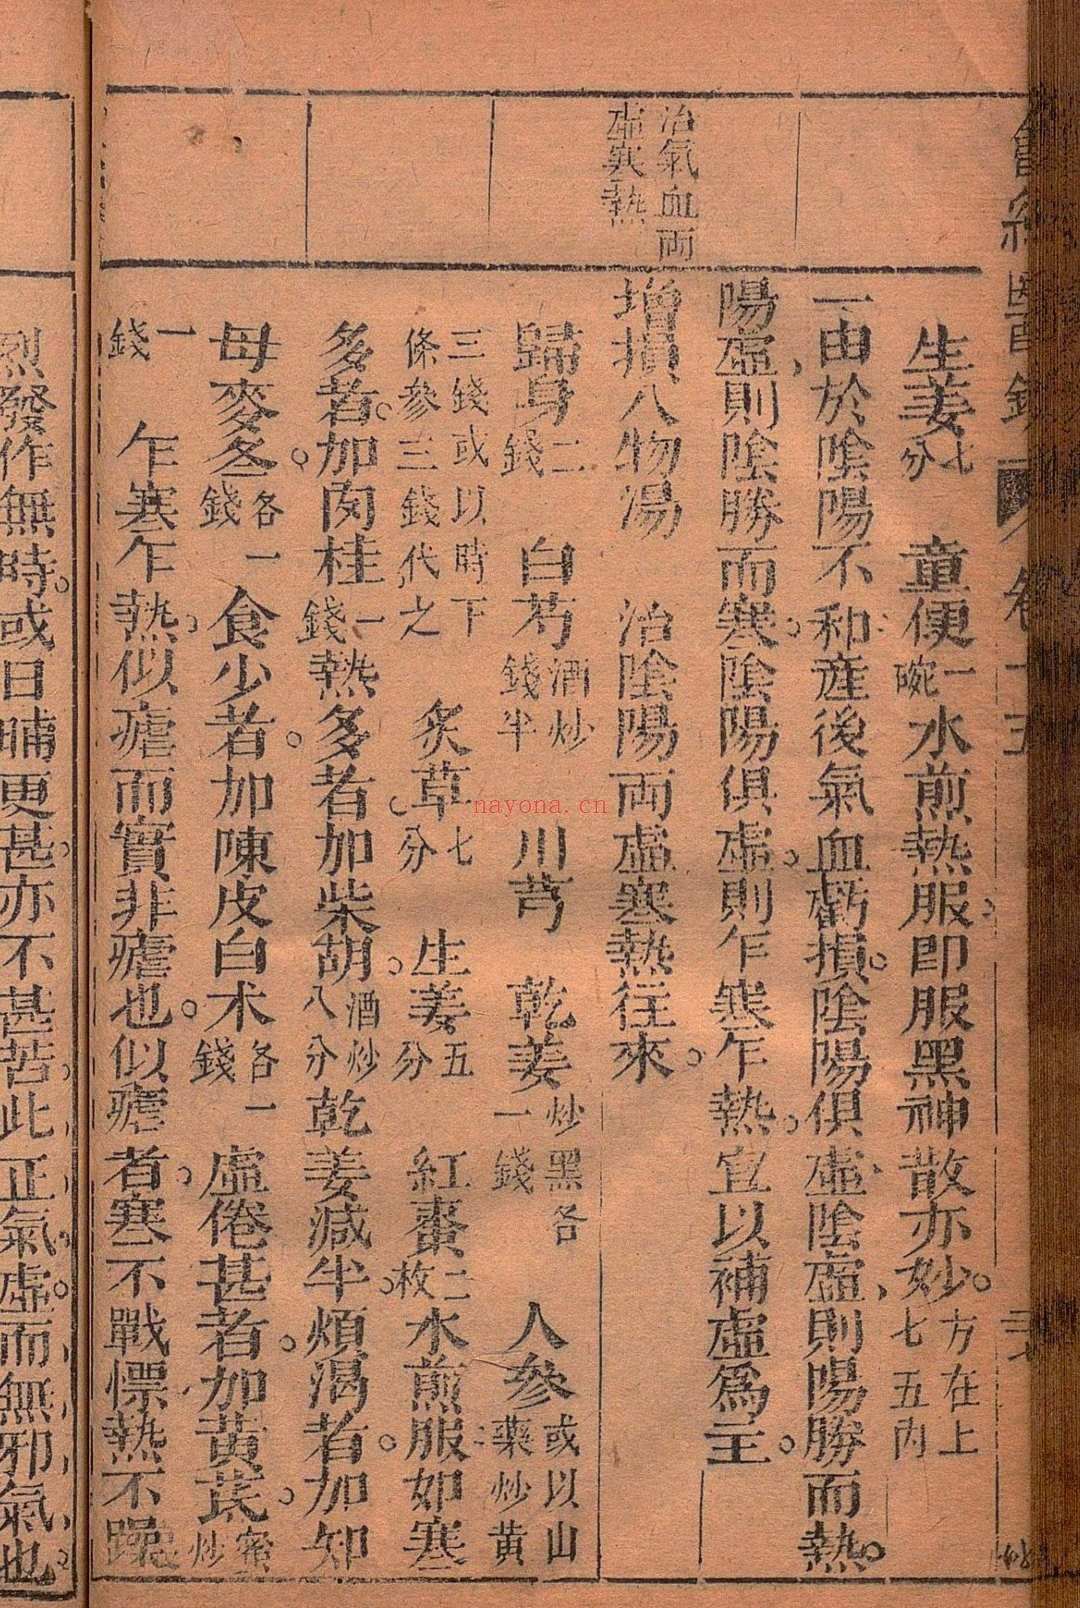 生姜七分　童便一碗水煎熱服即服黑神散亦妙。方在上七五內
一由於陰陽不和産後氣血虧損。陰陽俱虛、陰虛、則陽勝而熱。
陽虛、則陰勝而寒。陰陽俱虛。則乍寒乍熱。宜以補虛爲主。
治氣血兩虛寒熱
增損八物湯　治陰陽兩虛寒熱往來。
歸身二錢　白芍酒炒錢半　川芎　乾姜炒黑各一錢　人參或以山藥炒黃
三錢或以時下條參三錢代之　炙草七分　生姜五分　紅棗二枚水煎服如寒
多者。加肉桂一錢熱多者。加柴胡。酒炒八分乾姜減半。煩渴者。加知
母麥冬。各一錢食少者。加陳皮白术各一錢　虛倦甚者。加黃芪。蜜炒
一錢　乍寒乍熱。似瘧而實非瘧也。似瘧者。寒不戰慄熱不躁
烈發作無時。或日晡更甚。亦不甚苦。此正氣虛。而無邪氣也。
nayona.cn